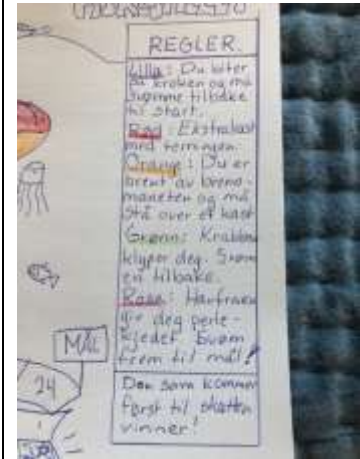 REGLER.
Lilla: Du biter
på kroken og må
svømme tilbake
til start.
Rød: Ekstrakast
med terningen.
Orange: Du er
brent av brenn-
maneten og må
stå over et kast
Grønn: Krabben
klyper deg. Svøm
en tilbake.
Rosa: Havfruen
gir deg perle-
kjedet svøm
frem til mål!
MÅL
24
Den som kommer
først til skatten
vinner!